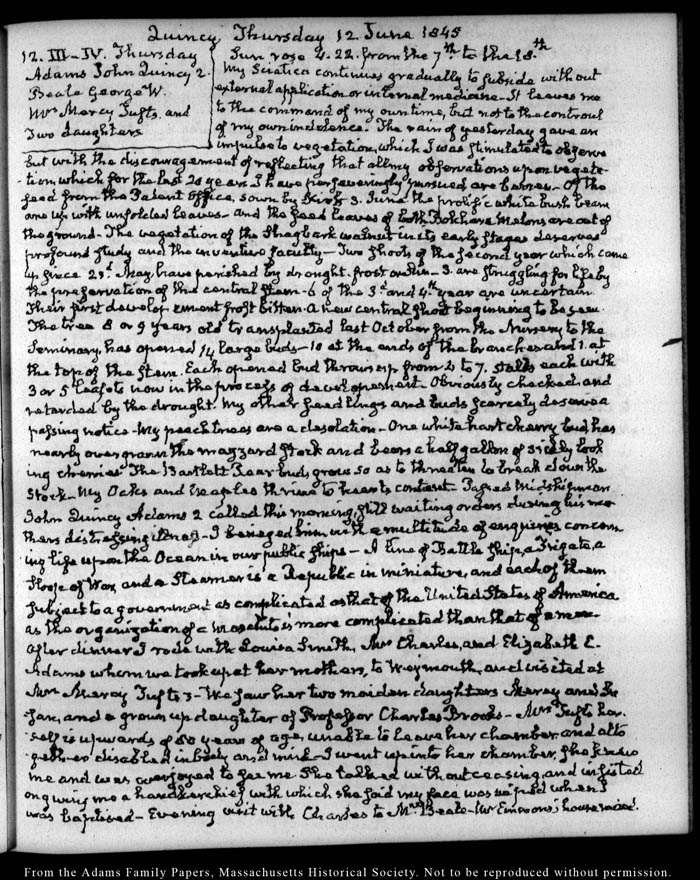 Quincy Thursday 12. June 1845
12. III-IV. Thursday
Adams John Quincy 2.
Beale George W.
Mrs Mercy Tufts, and
Two daughters
Sun rose 4.22. from the 7th to the 18.th
My Sciatica continues gradually to subside without
external application or internal medicine. It leaves me
to the command of my own time, but not to the controul
of my own indolence. The rain of yesterday gave an
impulse to vegetation, which I was stimulated to observe
but with the discouragement of reflecting that all my observations upon vegeta-
-tion which for the last 20 years I have perseveringly pursued are barren. Of the
seed from the Patent Office, sown by Kirk 3. June the prolific white bush bean
are up with unfolded leaves- and the seed leaves of both Melons are out of
the ground. The vegetation of the Shagbark walnut in its early stages deserves
profound study and the inventive faculty- Two shoots of the second year which came
up since 29. May have perished by drought frost or - 3. are struggling for life by
the preservation of the central stem- 6 of the 3d and 4th year are uncertain.
Their first development frost bitten. A new central shoot beginning to be seen.
The tree 8 or 9 years old transplanted last October from the Nursery to the
Seminary, has opened 14 large buds- 10 at the ends of the branches and 1. at
the top of the Stem. Each opened bud throws up from 2 to 7. stalks each with
3 or 5 leaflets now in the process of development. Obviously checked and
retarded by the drought. My other seedlings and buds scarcely deserve a
passing notice- My peach trees are a desolation- One white hart cherry bud has
nearly overgrown the mazzard stock and bears a half gallon of sickly look
ing cherries. The Bartlett Pear buds, grow so as to threaten to break down the
Stock. My Oaks and thrive to hearts content- Passed Midshipman
John Quincy Adams 2 called this morning, still waiting orders during his mo
thers distressing illness- I besieged him with a multitude of enquiries concern
ing life upon the Ocean in our public ships- A line of Battle Ship, a Frigate, a
Sloop of War and a Steamer is a Republic in miniature, and each of them
subject to a government as complicated as that of the United States of America
as the organization of a is more complicated than that of a man
After dinner I rode with Louisa Smith, Mrs Charles, and Elizabeth C.
Adams whom we took up at her mothers, to Weymouth, and visited at
Mrs Mercy Tufts's- We saw her two maiden daughters Mercy and Su
san, and a grown up daughter of Professor Charles Brooks- Mrs Tufts her-
self is upwards of 80 years of age, unable to leave her chamber and alto
gether disabled in body and mind- I went up into her chamber. She knew
me and was overjoyed to see me. She talked without ceasing and insisted
on giving me a handkerchief with which she said my face was wiped when I
was baptised- Evening visit with Charles to Mr Beale- Mr Emmons' house raised.
From the Adams Family Papers, Massachusetts Historical Society. Not to be reproduced without permission.